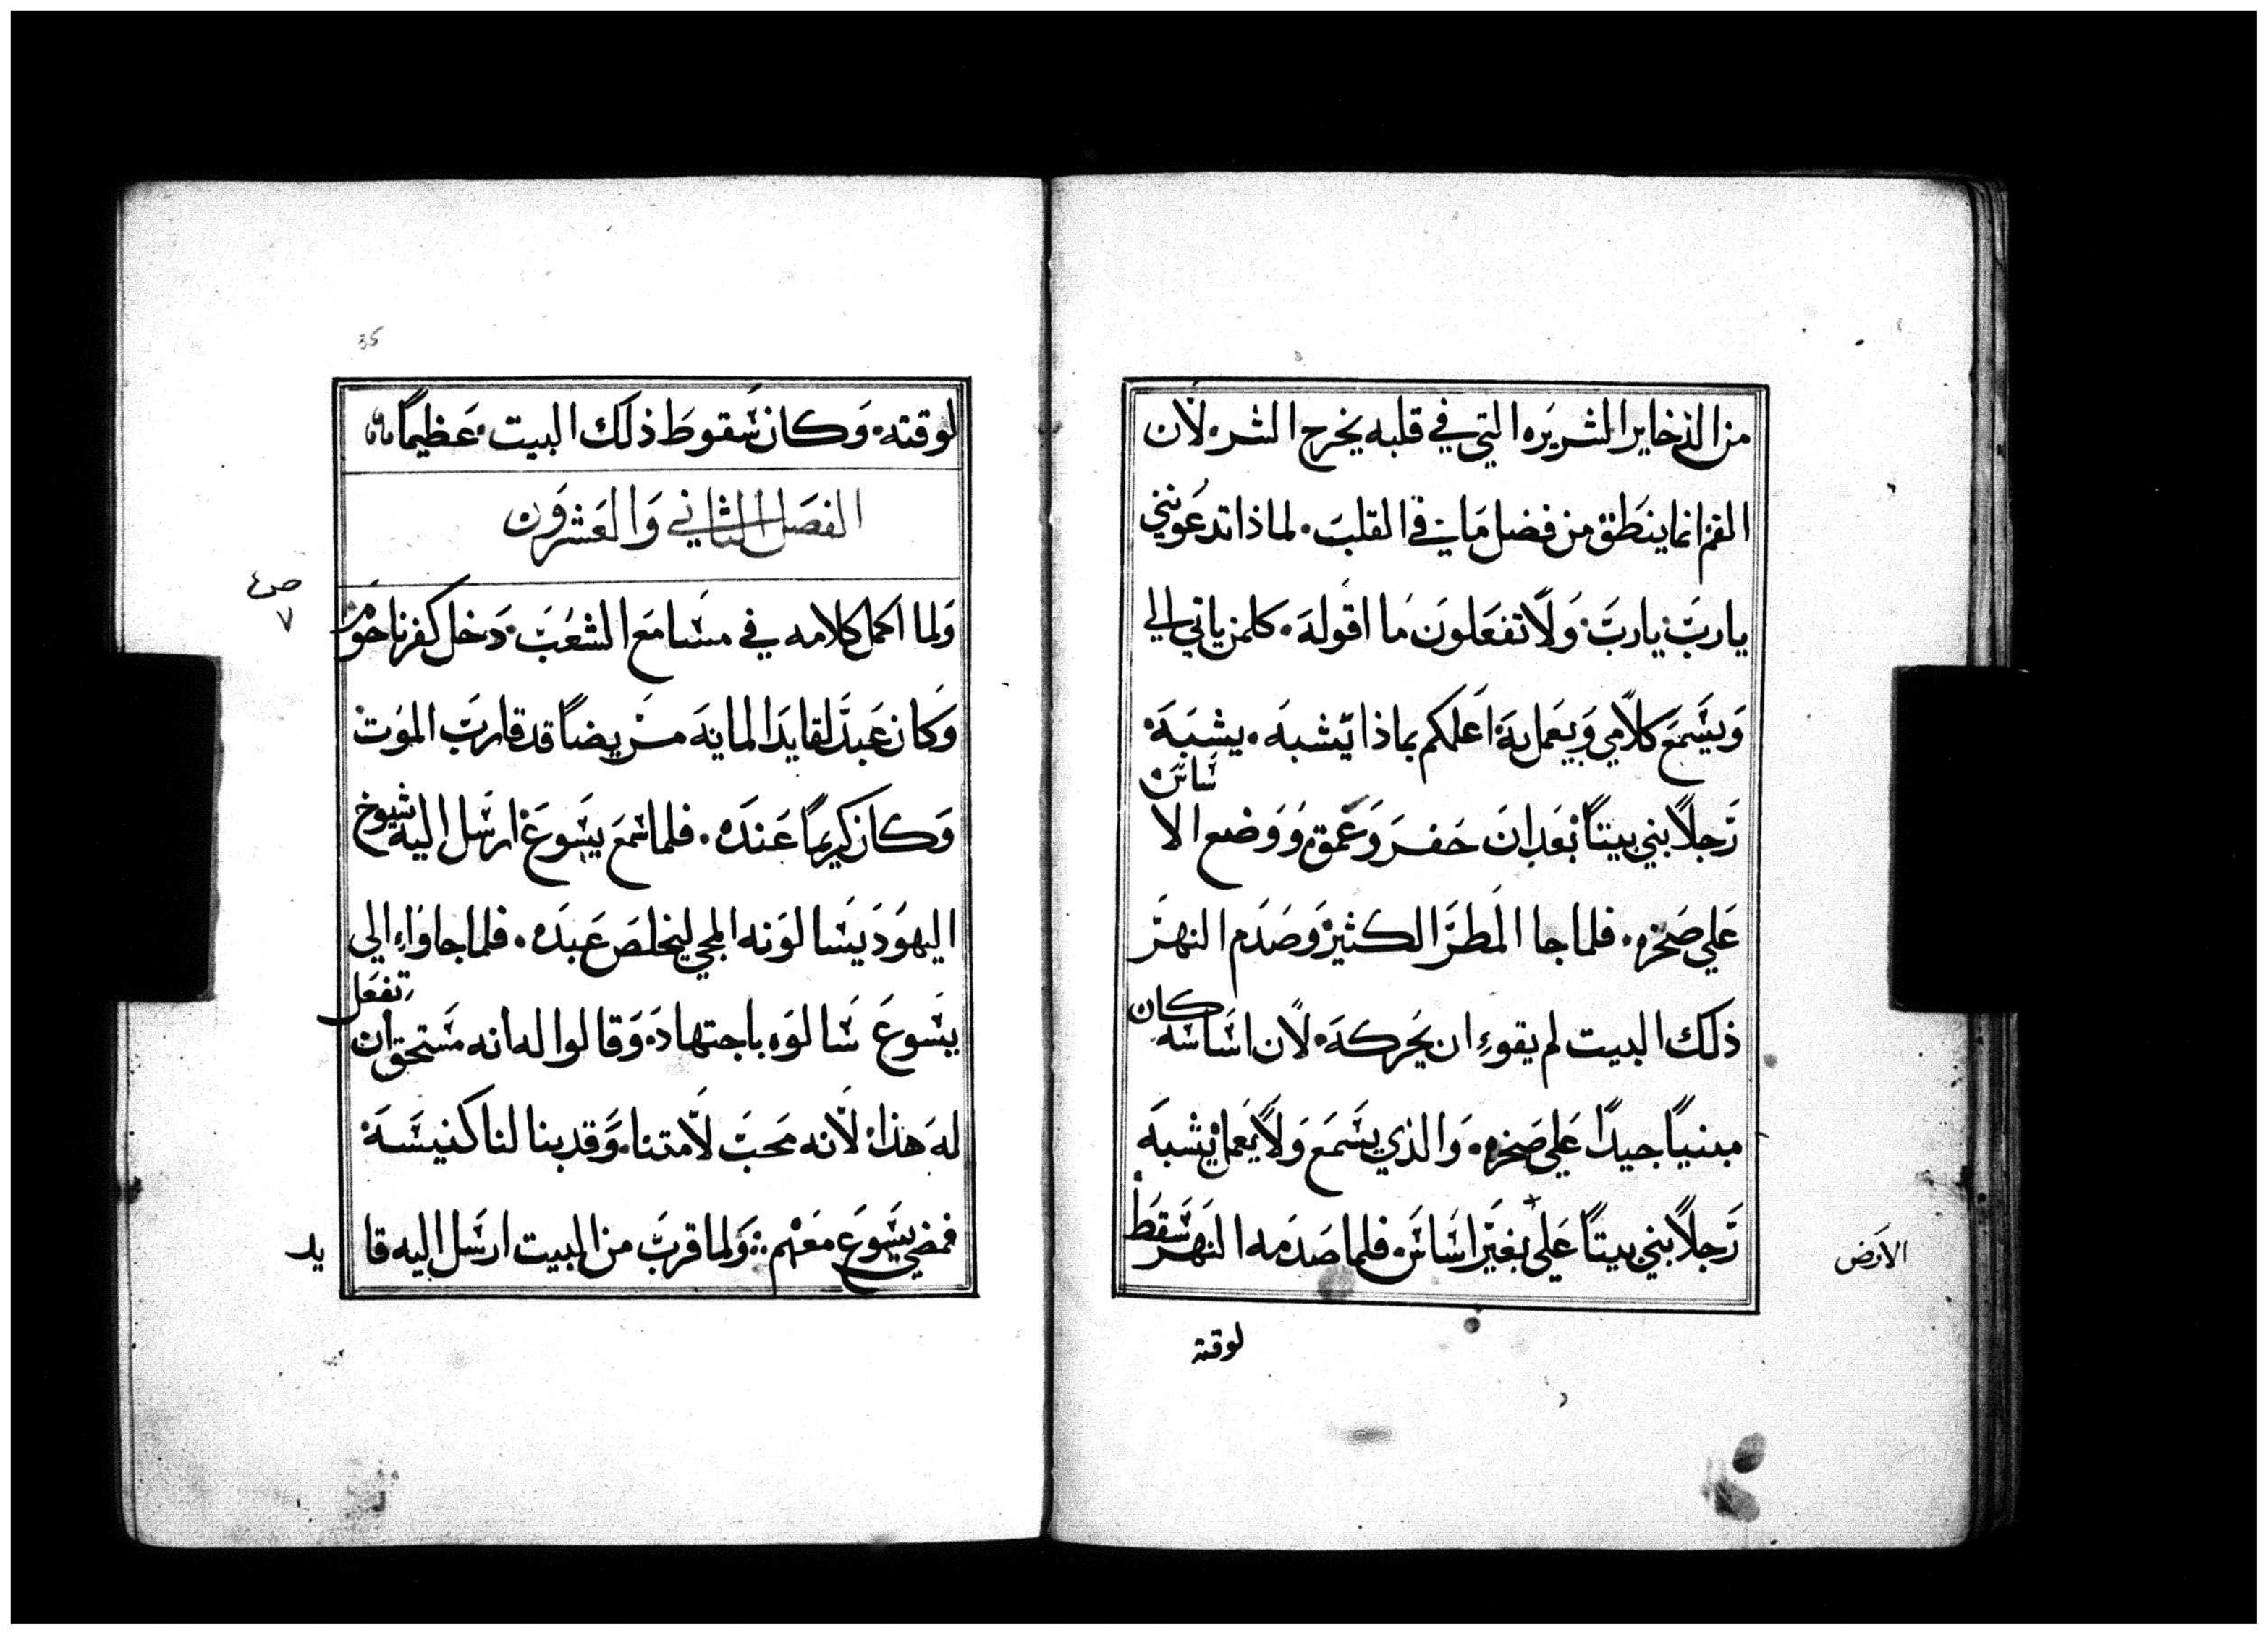 من الذخاير الشريره التي في قلبه يخرج الشر. لأن
الفم انما ينطق من فضل ما في القلب. لماذا تدعونني
يارب يارب ولا تفعلون ما اقوله. كلمن ياتي الي
ويسمع كلامي ويعمل به اعلمكم بماذا يشبه. يشبه
رجلاً بني بيتاً بعد ان حفر وعمق ووضع الا ساس
علي صخره. فلما جا المطر الكثير وصدم النهر
ذلك البيت لم يقوء ان يحركه لان اساسه كان
مبنياً جيداً علي صخره. والذي يسمع ولا يعمل يشبه
رجلاً بني بيتاً علي بغير اساس. فلما صدمه النهر سقط
الارض
لوقته
35
لوقته. وكان سقوط ذلك البيت. عظيماً
الفصل الثاني والعشرون
ص
٧
ولما اكمل كلامه في مسامع الشعب. دخل كفرناحوم
وكان عبد لقايد المايه مريضاً قد قارب الموت
وكان كريماً عنده. فلما سمع يسوع ارسل اليه شيوخ
اليهود يسالونه المجي ليخلص عبده. فلما جاواء الي
يسوع سالوه باجتهاد. وقالوا له انه مستحق ان تفعل
له هذا. لانه محب لامتنا. وقد بنا لنا كنيسة
فمضي يسوع معهم. ولما قرب من البيت ارسل اليه قا يد